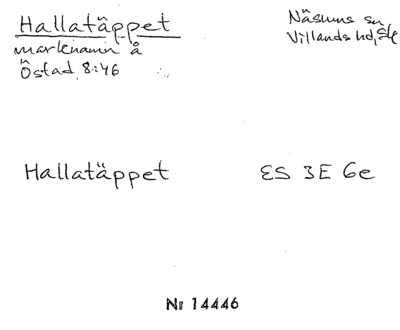 Hallatäppet
marknamn å
Östad 8:46
Näsums sn
Villands hd, Sk
Hallatäppet
ES 3E 6e
Nr 14446